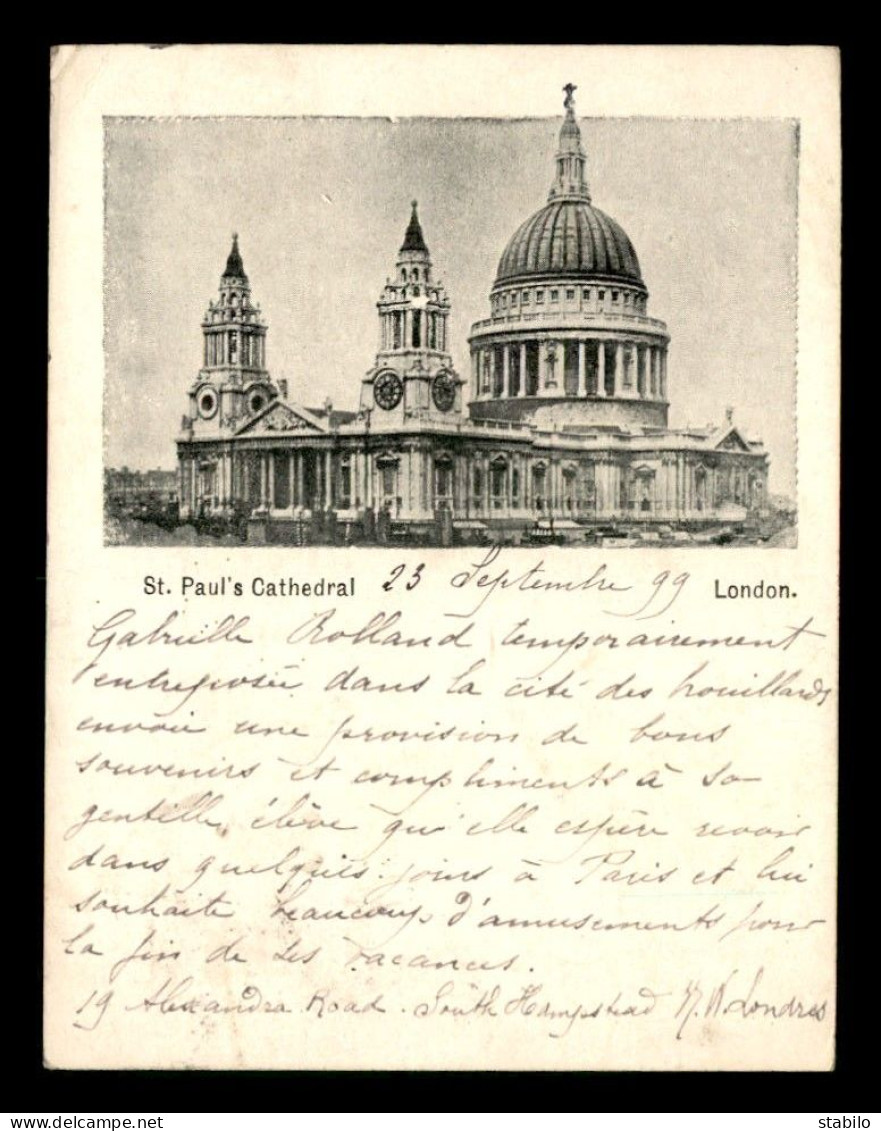 St. Paul's Cathedral 23 Septembre 99 London.
Gabrielle Rolland temporairement
entreposée dans la cité des brouillards
envoie une provision de bons
souvenirs et compliments à sa
gentille élève qu'elle espère revoir
dans quelques jours à Paris et lui
souhaite beaucoup d'amusements pour
la fin de ses vacances.
19 Alexandra Road. South Hampstead N.W. Londres
www.delcampe.net
stabilo